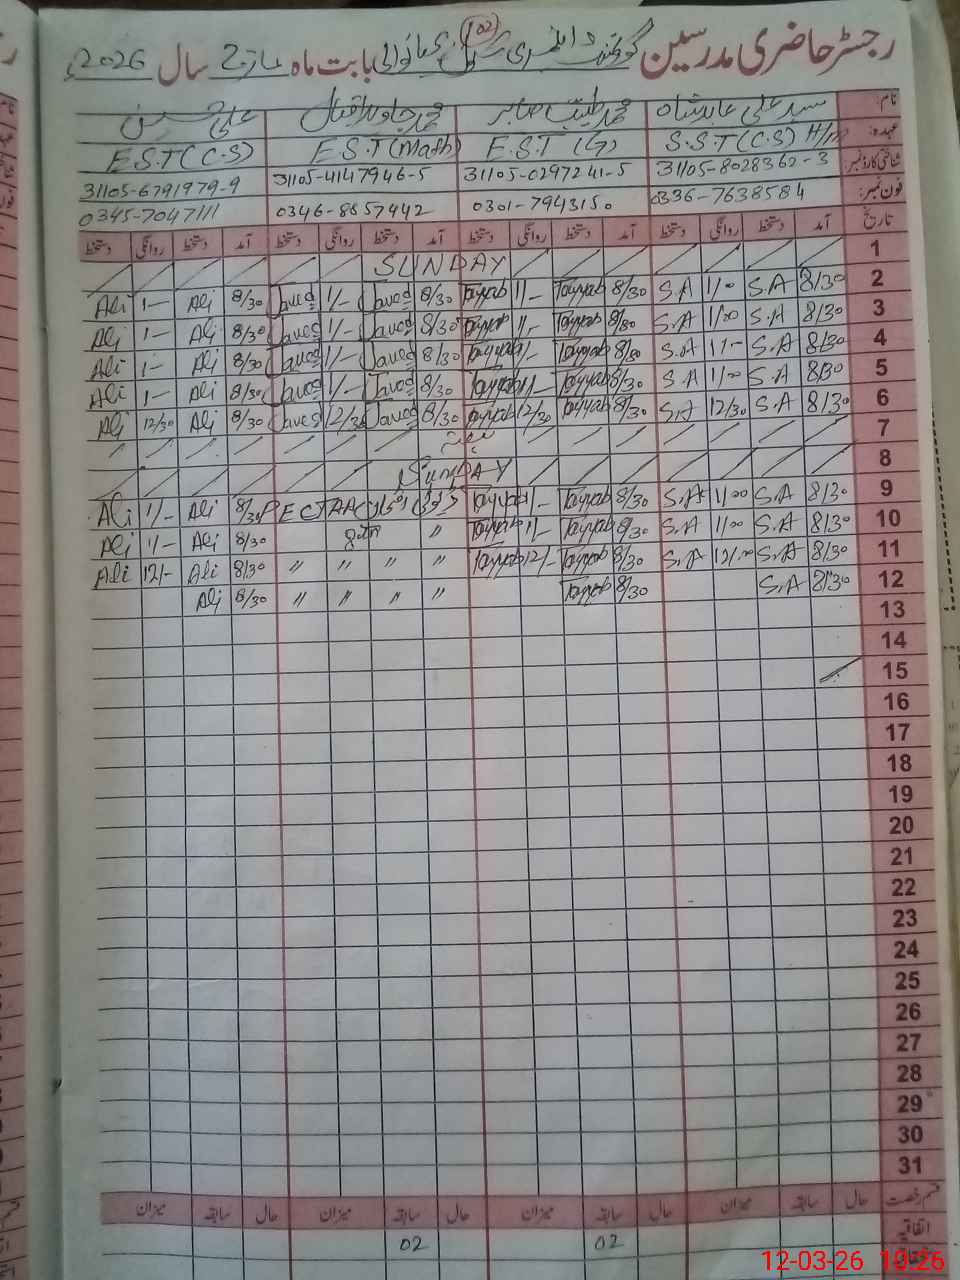 رجسٹر حاضری مدرسین گورنمنٹ (02) بابت ماہ مارچ سال 2026ء
نام: سید علی عابد شاہ محمد طیب صابر محمد جاوید اقبال علی حسین
عہدہ: S.S.T (C.S) H/m E.S.T (G) E.S.T (Math) E.S.T (C.S)
شناختی کارڈ نمبر: 31105-8028362-3 31105-0297241-5 31105-4147946-5 31105-6791979-9
فون نمبر: 0336-7638584 0301-7943150 0346-8657442 0345-7047111
تاریخ آمد دستخط روانگی دستخط آمد دستخط روانگی دستخط آمد دستخط روانگی دستخط آمد دستخط روانگی دستخط
1 SUNDAY
2 8/30 S.A 1/00 S.A 8/30 Tayyab 1/- Tayyab 8/30 Javed 1/- Javed 8/30 Ali 1- Ali
3 8/30 S.A 1/00 S.A 8/30 Tayyab 1/- Tayyab 8/30 Javed 1/- Javed 8/30 Ali 1- Ali
4 8/30 S.A 1/- S.A 8/30 Tayyab 1/- Tayyab 8/30 Javed 1/- Javed 8/30 Ali 1- Ali
5 8/30 S.A 1/00 S.A 8/30 Tayyab 1/- Tayyab 8/30 Javed 1/- Javed 8/30 Ali 1- Ali
6 8/30 S.A 12/30 S.A 8/30 Tayyab 12/30 Tayyab 8/30 Javed 12/30 Javed 8/30 Ali 12/30 Ali
7
8 SUNDAY
9 8/30 S.A 1/00 S.A 8/30 Tayyab 1/- Tayyab PECTAA 8/30 Ali 1/- Ali
10 8/30 S.A 1/00 S.A 8/30 Tayyab 1/- Tayyab " 8th 8/30 Ali 1/- Ali
11 8/30 S.A 12/00 S.A 8/30 Tayyab 12/- Tayyab " " " " 8/30 Ali 12/- Ali
12 8/30 S.A 8/30 Tayyab " " " " 8/30 Ali
13
14
15
16
17
18
19
20
21
22
23
24
25
26
27
28
29
30
31
قسم رخصت حال سابقہ میزان حال سابقہ میزان حال سابقہ میزان حال سابقہ میزان
اتفاقیہ 02 02
12-03-26 10:26